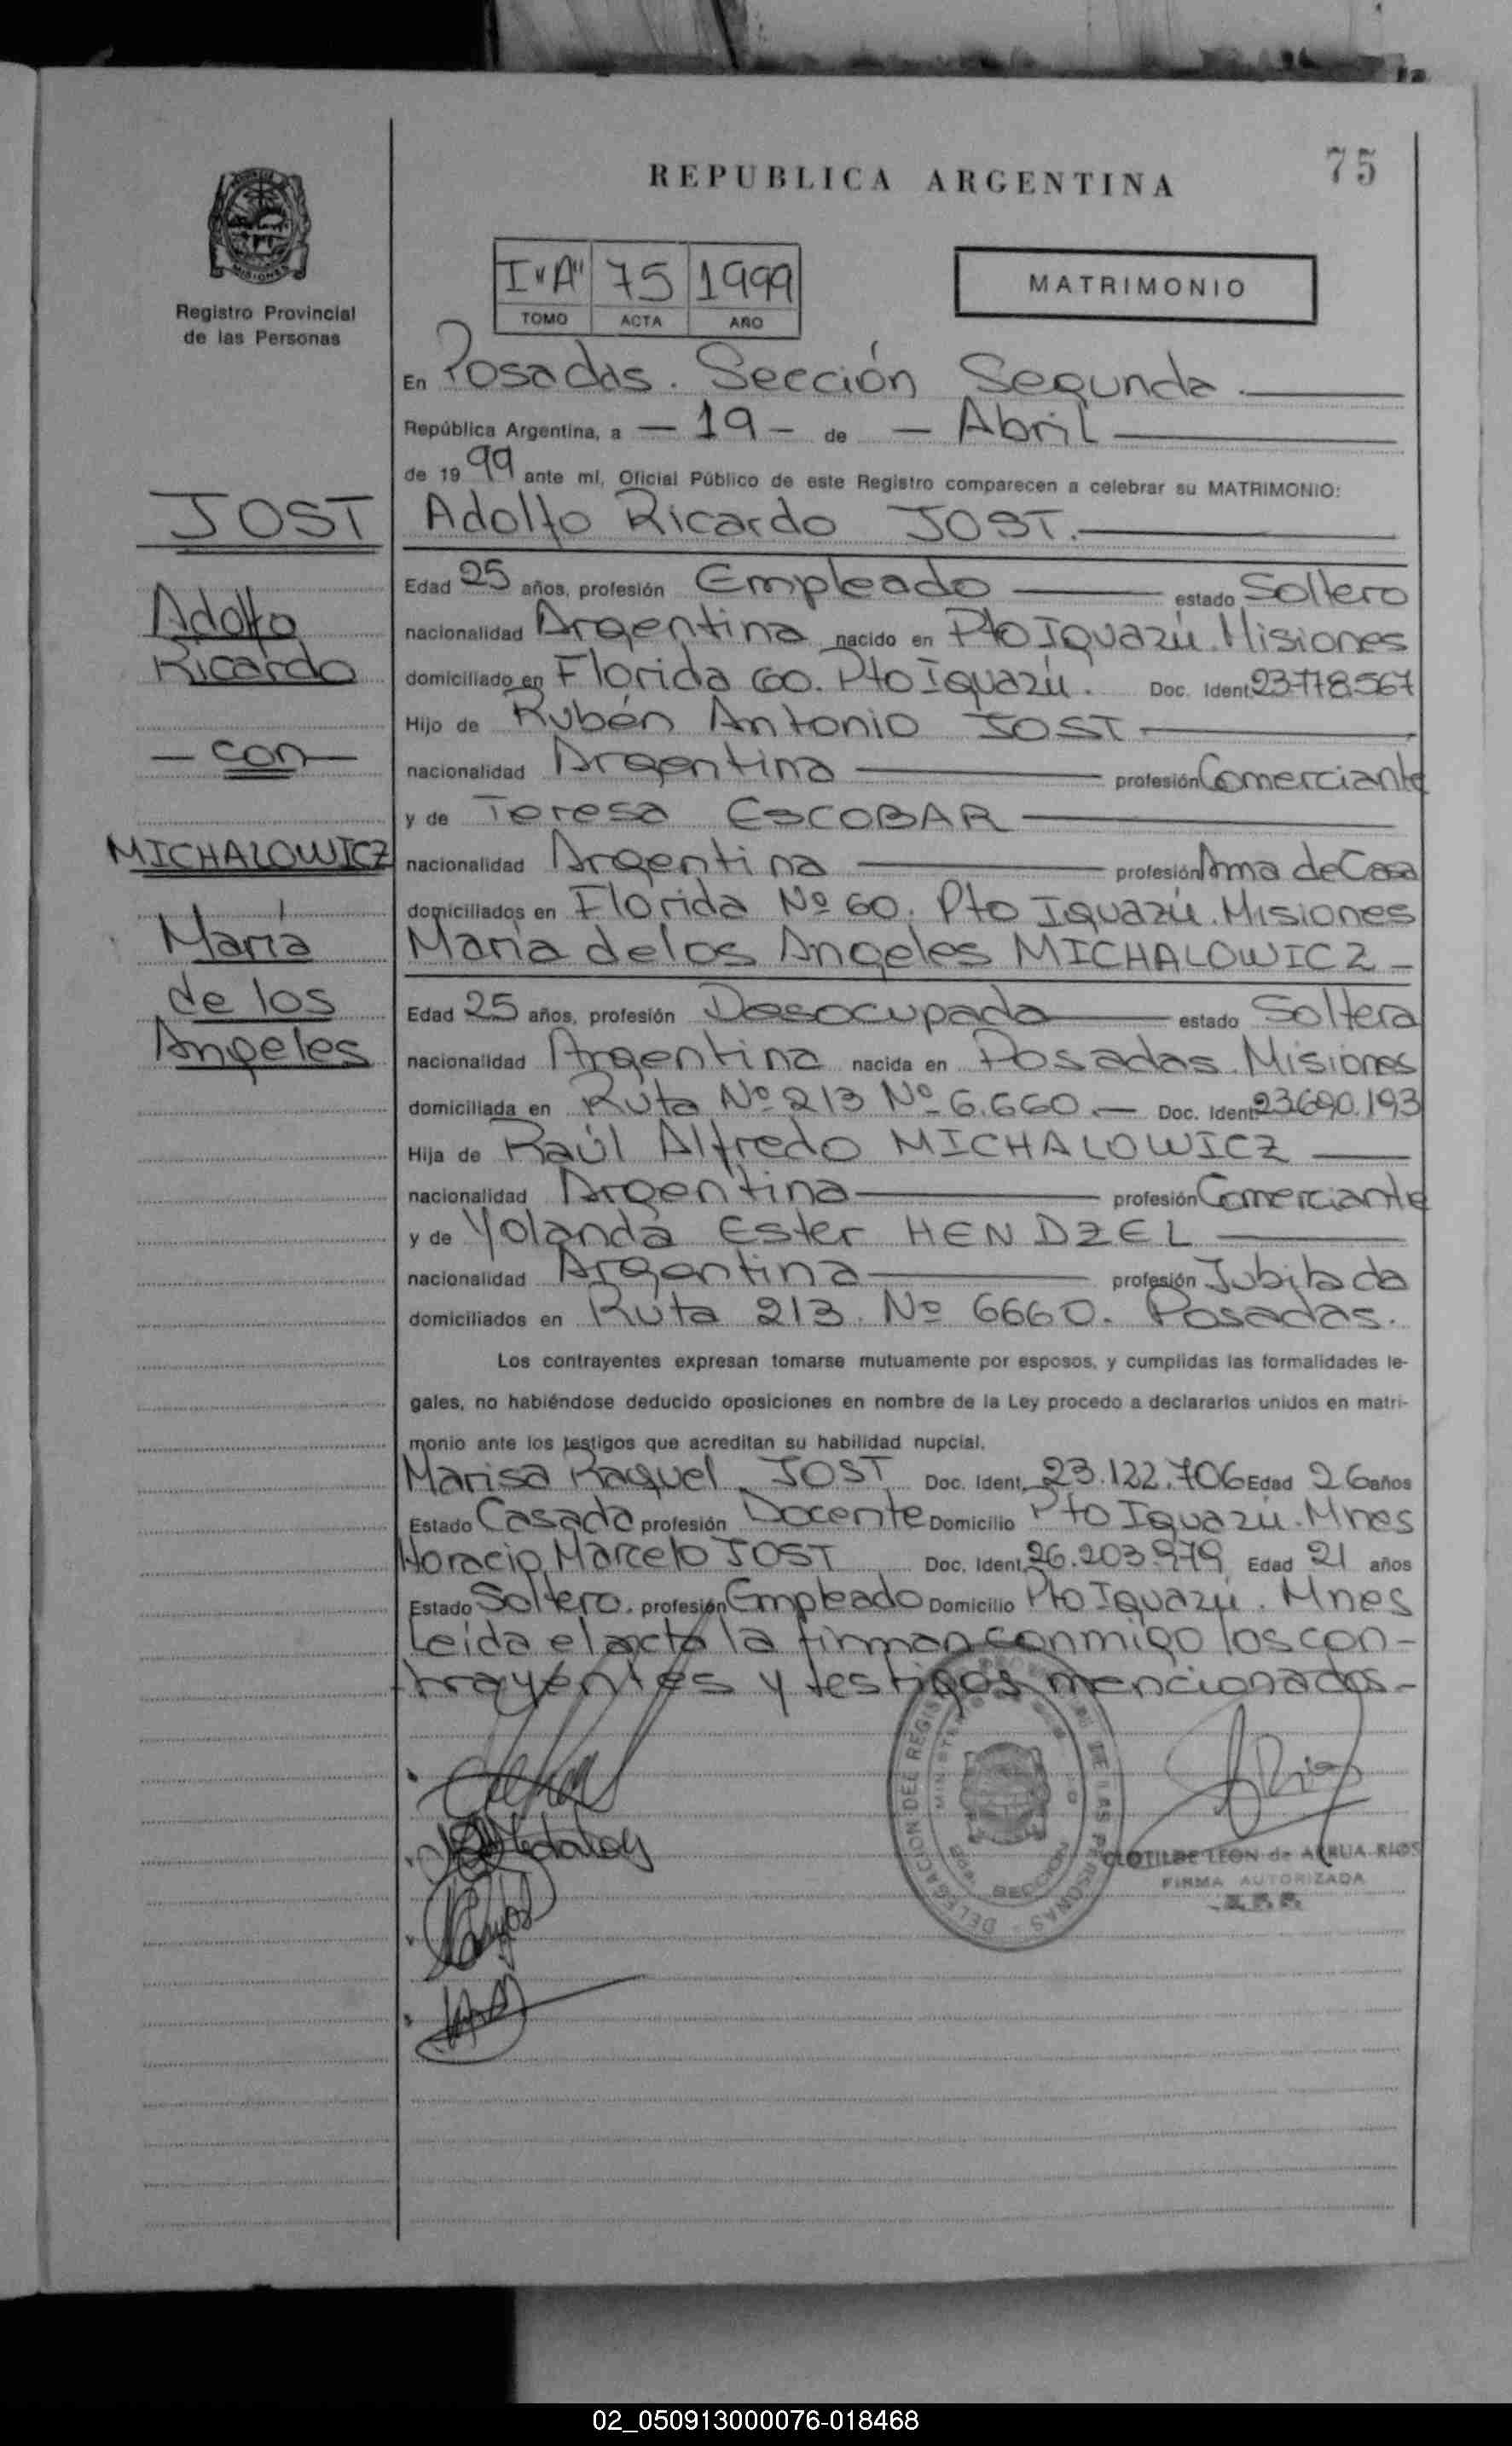 75
REPUBLICA ARGENTINA
MISIONES
Registro Provincial
de las Personas
I "A" 75 1999
TOMO ACTA AÑO
MATRIMONIO
En Posadas. Sección Segunda.
República Argentina, a — 19 — de — Abril
de 1999 ante mí, Oficial Público de este Registro comparecen a celebrar su MATRIMONIO:
JOST
Adolfo
Ricardo
— con —
MICHALOWICZ
María
de los
Angeles
Adolfo Ricardo JOST.
Edad 25 años, profesión Empleado estado Soltero
nacionalidad Argentina nacido en Pto Iguazú. Misiones
domiciliado en Florida 60. Pto Iguazú. Doc. Ident. 23.778.567
Hijo de Rubén Antonio JOST
nacionalidad Argentina profesión Comerciante
y de Teresa ESCOBAR
nacionalidad Argentina profesión Ama de Casa
domiciliados en Florida Nº 60. Pto Iguazú. Misiones
María de los Angeles MICHALOWICZ —
Edad 25 años, profesión Desocupada estado Soltera
nacionalidad Argentina nacida en Posadas. Misiones
domiciliada en Ruta Nº 213 Nº 6.660. — Doc. Ident. 23.690.193
Hija de Raúl Alfredo MICHALOWICZ
nacionalidad Argentina profesión Comerciante
y de Yolanda Ester HENDZEL
nacionalidad Argentina profesión Jubilada
domiciliados en Ruta 213. Nº 6660. Posadas.
Los contrayentes expresan tomarse mutuamente por esposos, y cumplidas las formalidades le-
gales, no habiéndose deducido oposiciones en nombre de la Ley procedo a declararlos unidos en matri-
monio ante los testigos que acreditan su habilidad nupcial.
Marisa Raquel JOST Doc. Ident. 23.122.706 Edad 26 años
Estado Casada profesión Docente Domicilio Pto Iguazú. Mnes
Horacio Marcelo JOST Doc. Ident. 26.203.979 Edad 21 años
Estado Soltero. profesión Empleado Domicilio Pto Iguazú. Mnes
Leída el acta la firman conmigo los con-
trayentes y testigos mencionados.-
DELEGACION DEL REGISTRO DE LAS PERSONAS
SECCION
CLOTILDE LEON de ARRUA RIOS
FIRMA AUTORIZADA
02_050913000076-018468